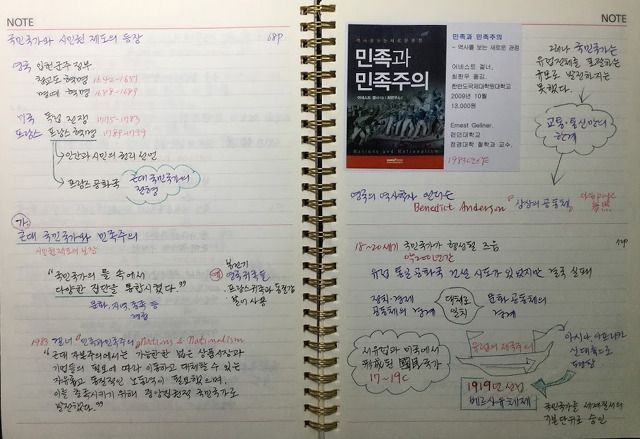 NOTE
국민국가와 시민권 제도의 등장 68p
영국 입헌군주정부
청교도 혁명 1642-1651
명예 혁명 1688-1689
미국 독립 전쟁 1775-1783
프랑스 프랑스 혁명 1789-1799
인간과 시민의 권리 선언
프랑스 공화국
근대 국민국가의
전형
근대 국민국가와 민족주의
시민권제도의 보장
"국민국가의 틀 속에서
다양한 집단을 통합시켰다."
문화, 지역, 종족 등
영국귀족들
불어 사용
1983 겔너 『민족과 민족주의』 Nations & Nationalism
"근대 자본주의에서는 가능한한 넓은 상품시장과
기업들의 필요에 따라 이동하고 대체할 수 있는
자유롭고 동질적인 노동력이 필요했으며,
이를 충족시키기 위해 중앙집권적 국민국가로
발전했다."
NOTE
역사를 보는 새로운 관점
민족과
민족주의
Nations and Nationalism
민족과 민족주의
- 역사를 보는 새로운 관점
어네스트 겔너,
최한우 옮김,
한반도국제대학원대학교
2009년 10월
13,000원
Ernest Gellner,
런던대학교
정경대학 철학과 교수,
그러나 국민국가는
유럽전체를 포괄하는
규모로 발전하지는
못했다.
교통·통신망의
한계
영국의 역사학자 앤더슨
Benedict Anderson 『상상의 공동체』
18~20세기 국민국가가 형성될 즈음
유럽 통일 공화국 건설 시도가 있었지만 결국 실패
정치·경제
공동체의 경계
대체로
일치
문화 공동체의
경계
서유럽과 미국에서
국가
17~19C
유럽의 제국주의
아시아, 아프리카
신대륙으로
1919년 선언
베르사유체제
국민국가를 세계질서의
기본단위로 승인